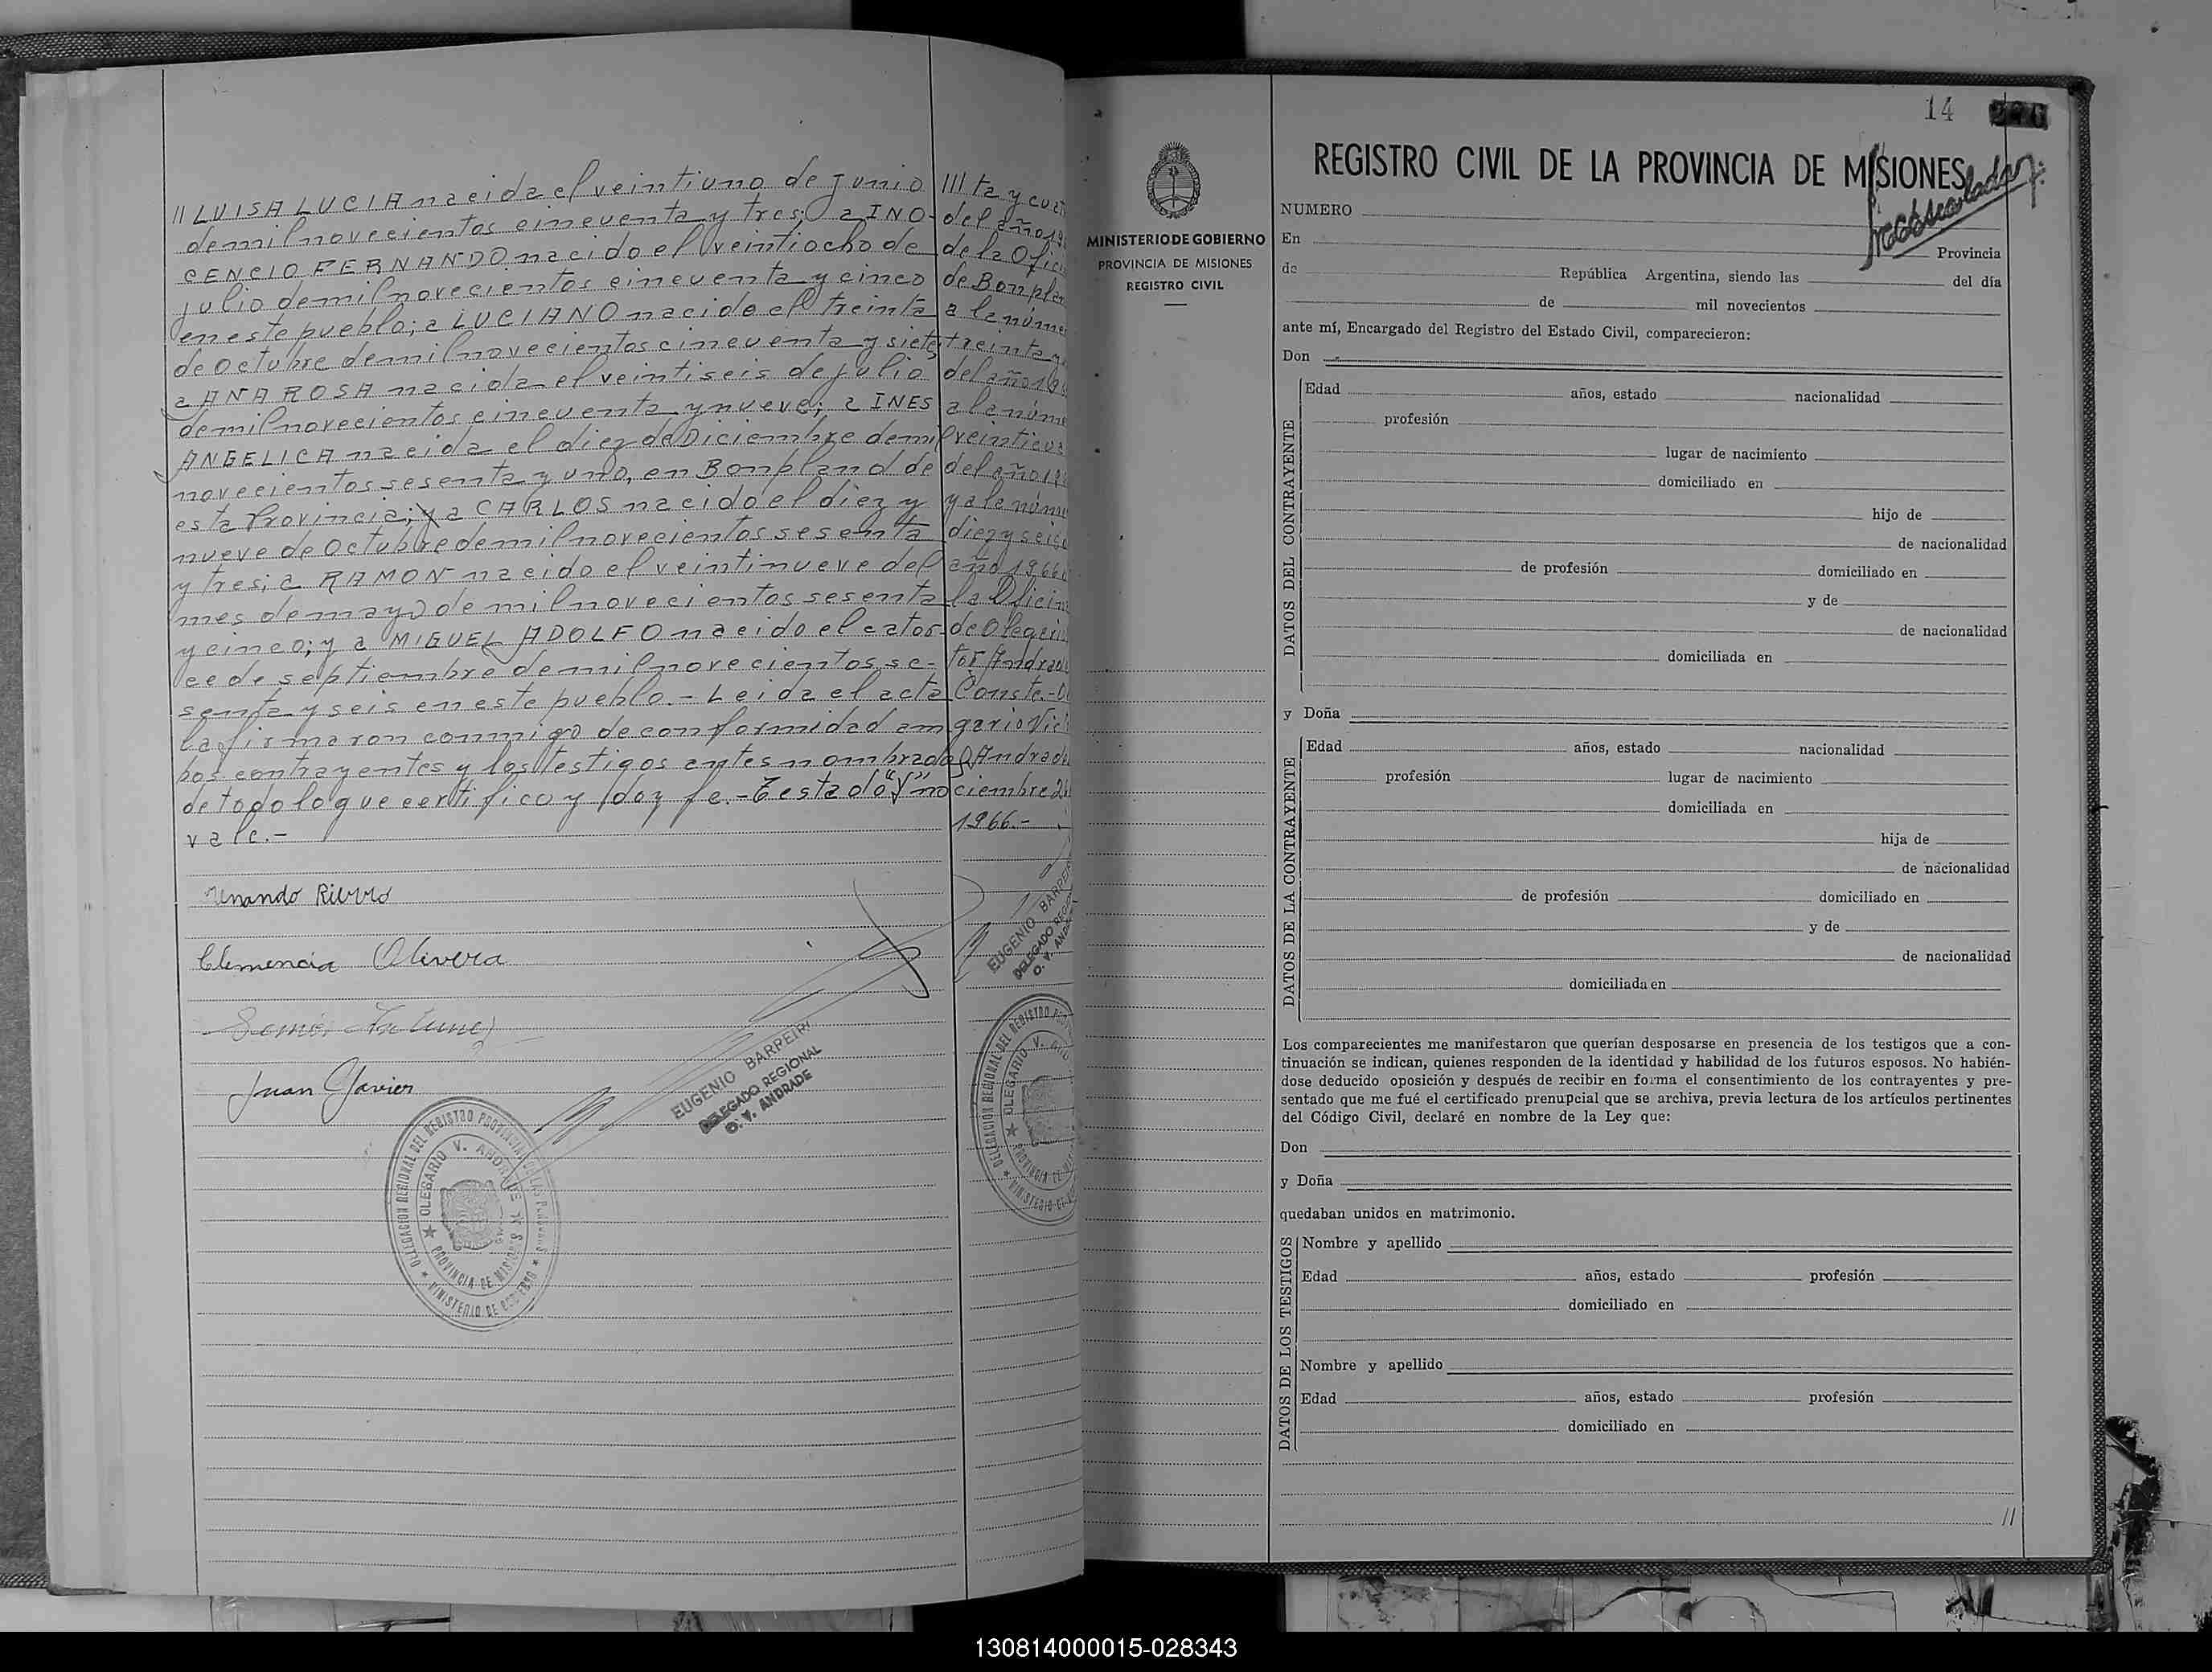 // LUISA LUCIA nacida el veintiuno de junio
de mil novecientos cincuenta y tres; a INO-
CENCIO FERNANDO nacido el veintiocho de
julio de mil novecientos cincuenta y cinco
en este pueblo; a LUCIANO nacido el treinta
de Octubre de mil novecientos cincuenta y siete;
a ANA ROSA nacida el veintiseis de julio
de mil novecientos cincuenta y nueve; a INES
ANGELICA nacida el diez de Diciembre de mil
novecientos sesenta y uno, en Bonpland de
esta Provincia; y a CARLOS nacido el diez y
nueve de Octubre de mil novecientos sesenta
y tres; a RAMON nacido el veintinueve del
mes de mayo de mil novecientos sesenta
y cinco; y a MIGUEL ADOLFO nacido el cator-
ce de septiembre de mil novecientos se-
senta y seis en este pueblo.- Leida el acta
la firmaron conmigo de conformidad am
bos contrayentes y los testigos antes nombrados
de todo lo que certifico y doy fe.- Testado "Y" no
vale.-
/// ta y cuat
del año 19
de la Ofici
de Bonplan
a la núme
treinta y
del año 19
a la núme
veinti
del año 19
y a la núme
diez y seis
año 1966
la Oficin
de Olegari
tor Andrade
Conste.- O
gario Vic
Andrade
ciembre 2
1966.-
Clemencia Olivera
Juan Javier
EUGENIO BARREIR
DELEGADO REGIONAL
O. V. ANDRADE
DELEGACION REGIONAL DEL REGISTRO PROVINCIAL DE LAS PERSONAS
OLEGARIO V. ANDRADE
PROVINCIA DE MISIONES
MINISTERIO DE GOBIERNO
EUGENIO BARREI
DELEGADO REGIO
O. V. AND
DELEGACION REGIONAL DEL REGISTRO PRO
OLEGARIO V. AND
PROVINCIA DE MI
MINISTERIO DE GO
MINISTERIO DE GOBIERNO
PROVINCIA DE MISIONES
REGISTRO CIVIL
14
REGISTRO CIVIL DE LA PROVINCIA DE MISIONES
NUMERO
En Provincia
de República Argentina, siendo las del día
de mil novecientos
ante mí, Encargado del Registro del Estado Civil, comparecieron:
Don
DATOS DEL CONTRAYENTE
Edad años, estado nacionalidad
profesión
lugar de nacimiento
domiciliado en
hijo de
de nacionalidad
de profesión domiciliado en
y de
de nacionalidad
domiciliada en
y Doña
DATOS DE LA CONTRAYENTE
Edad años, estado nacionalidad
profesión lugar de nacimiento
domiciliada en
hija de
de nacionalidad
de profesión domiciliado en
y de
de nacionalidad
domiciliada en
Los comparecientes me manifestaron que querían desposarse en presencia de los testigos que a con-
tinuación se indican, quienes responden de la identidad y habilidad de los futuros esposos. No habién-
dose deducido oposición y después de recibir en forma el consentimiento de los contrayentes y pre-
sentado que me fué el certificado prenupcial que se archiva, previa lectura de los artículos pertinentes
del Código Civil, declaré en nombre de la Ley que:
Don
y Doña
quedaban unidos en matrimonio.
DATOS DE LOS TESTIGOS
Nombre y apellido
Edad años, estado profesión
domiciliado en
Nombre y apellido
Edad años, estado profesión
domiciliado en
//
130814000015-028343